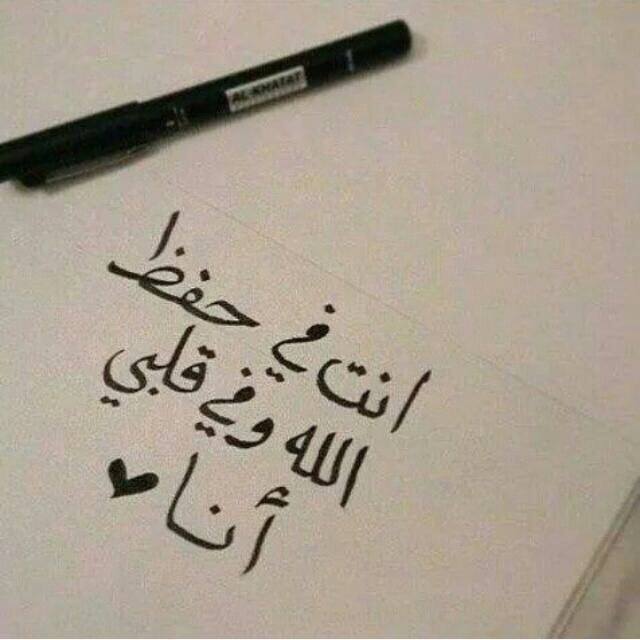 AL-KHATAT
انت في حفظ
الله وفي قلبي
أنا